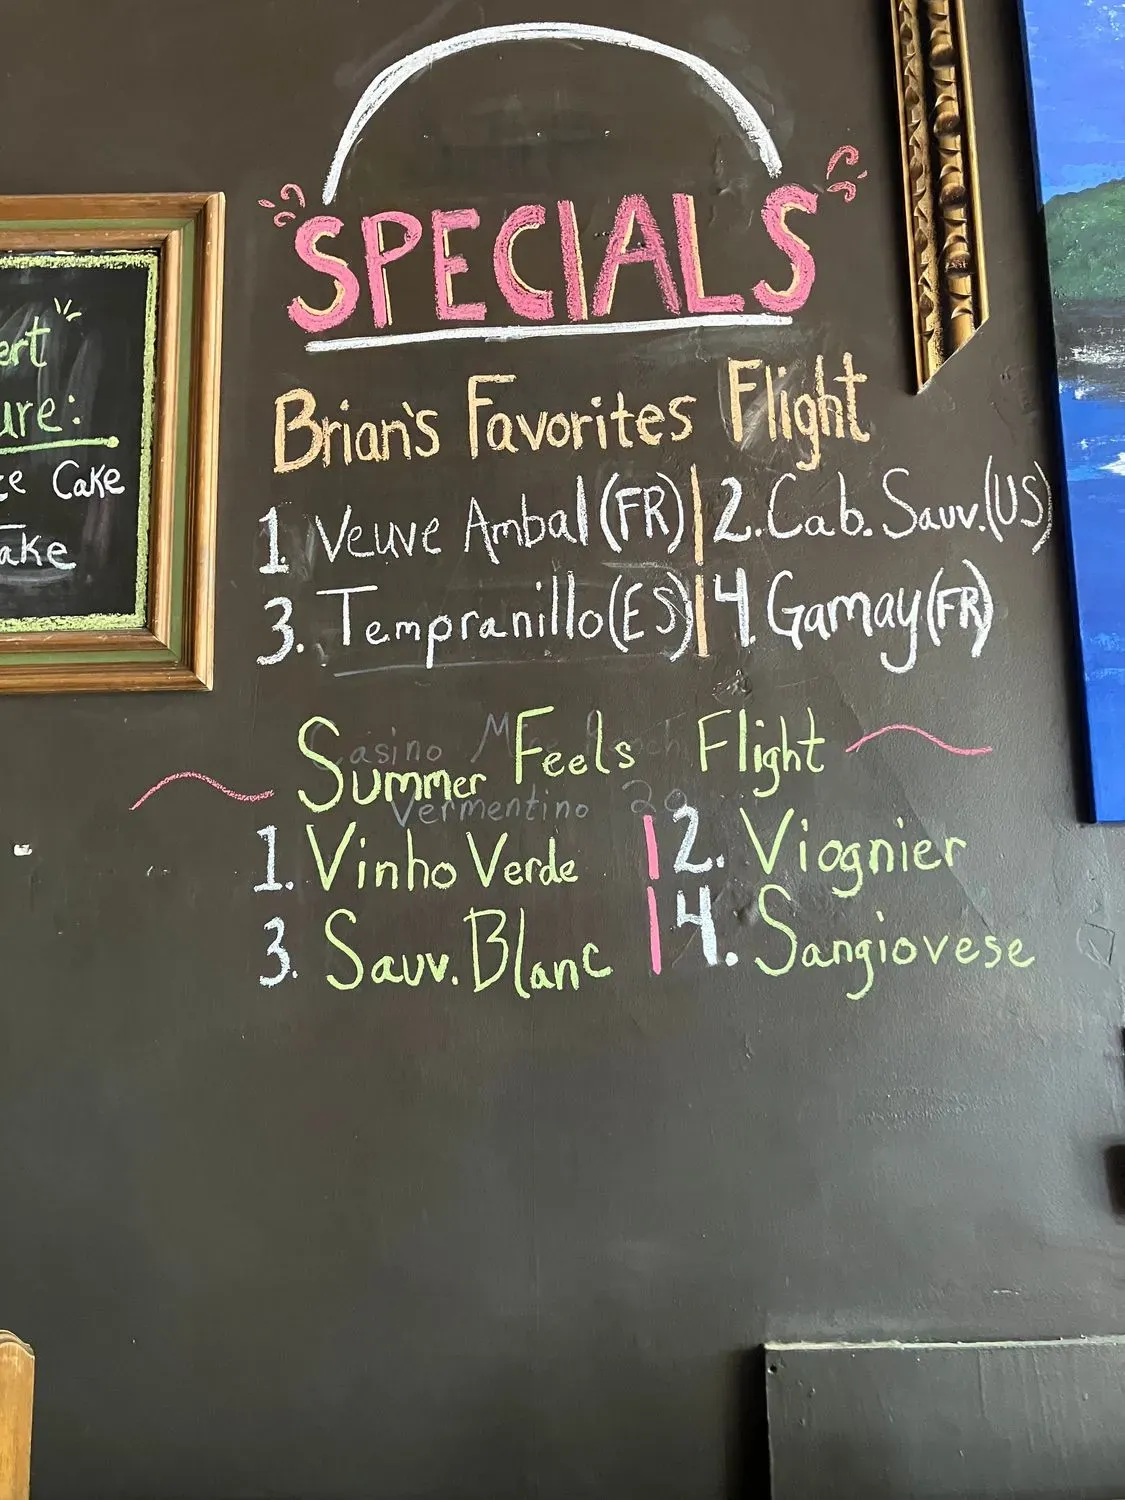 SPECIALS
Brian's Favorites Flight
1. Veuve Ambal (FR) | 2. Cab. Sauv. (US)
3. Tempranillo (ES) | 4. Gamay (FR)
Summer Feels Flight
Casino Mine Ranch
Vermentino 20
1. Vinho Verde | 2. Viognier
3. Sauv. Blanc | 4. Sangiovese
ert
ure:
ce Cake
ake